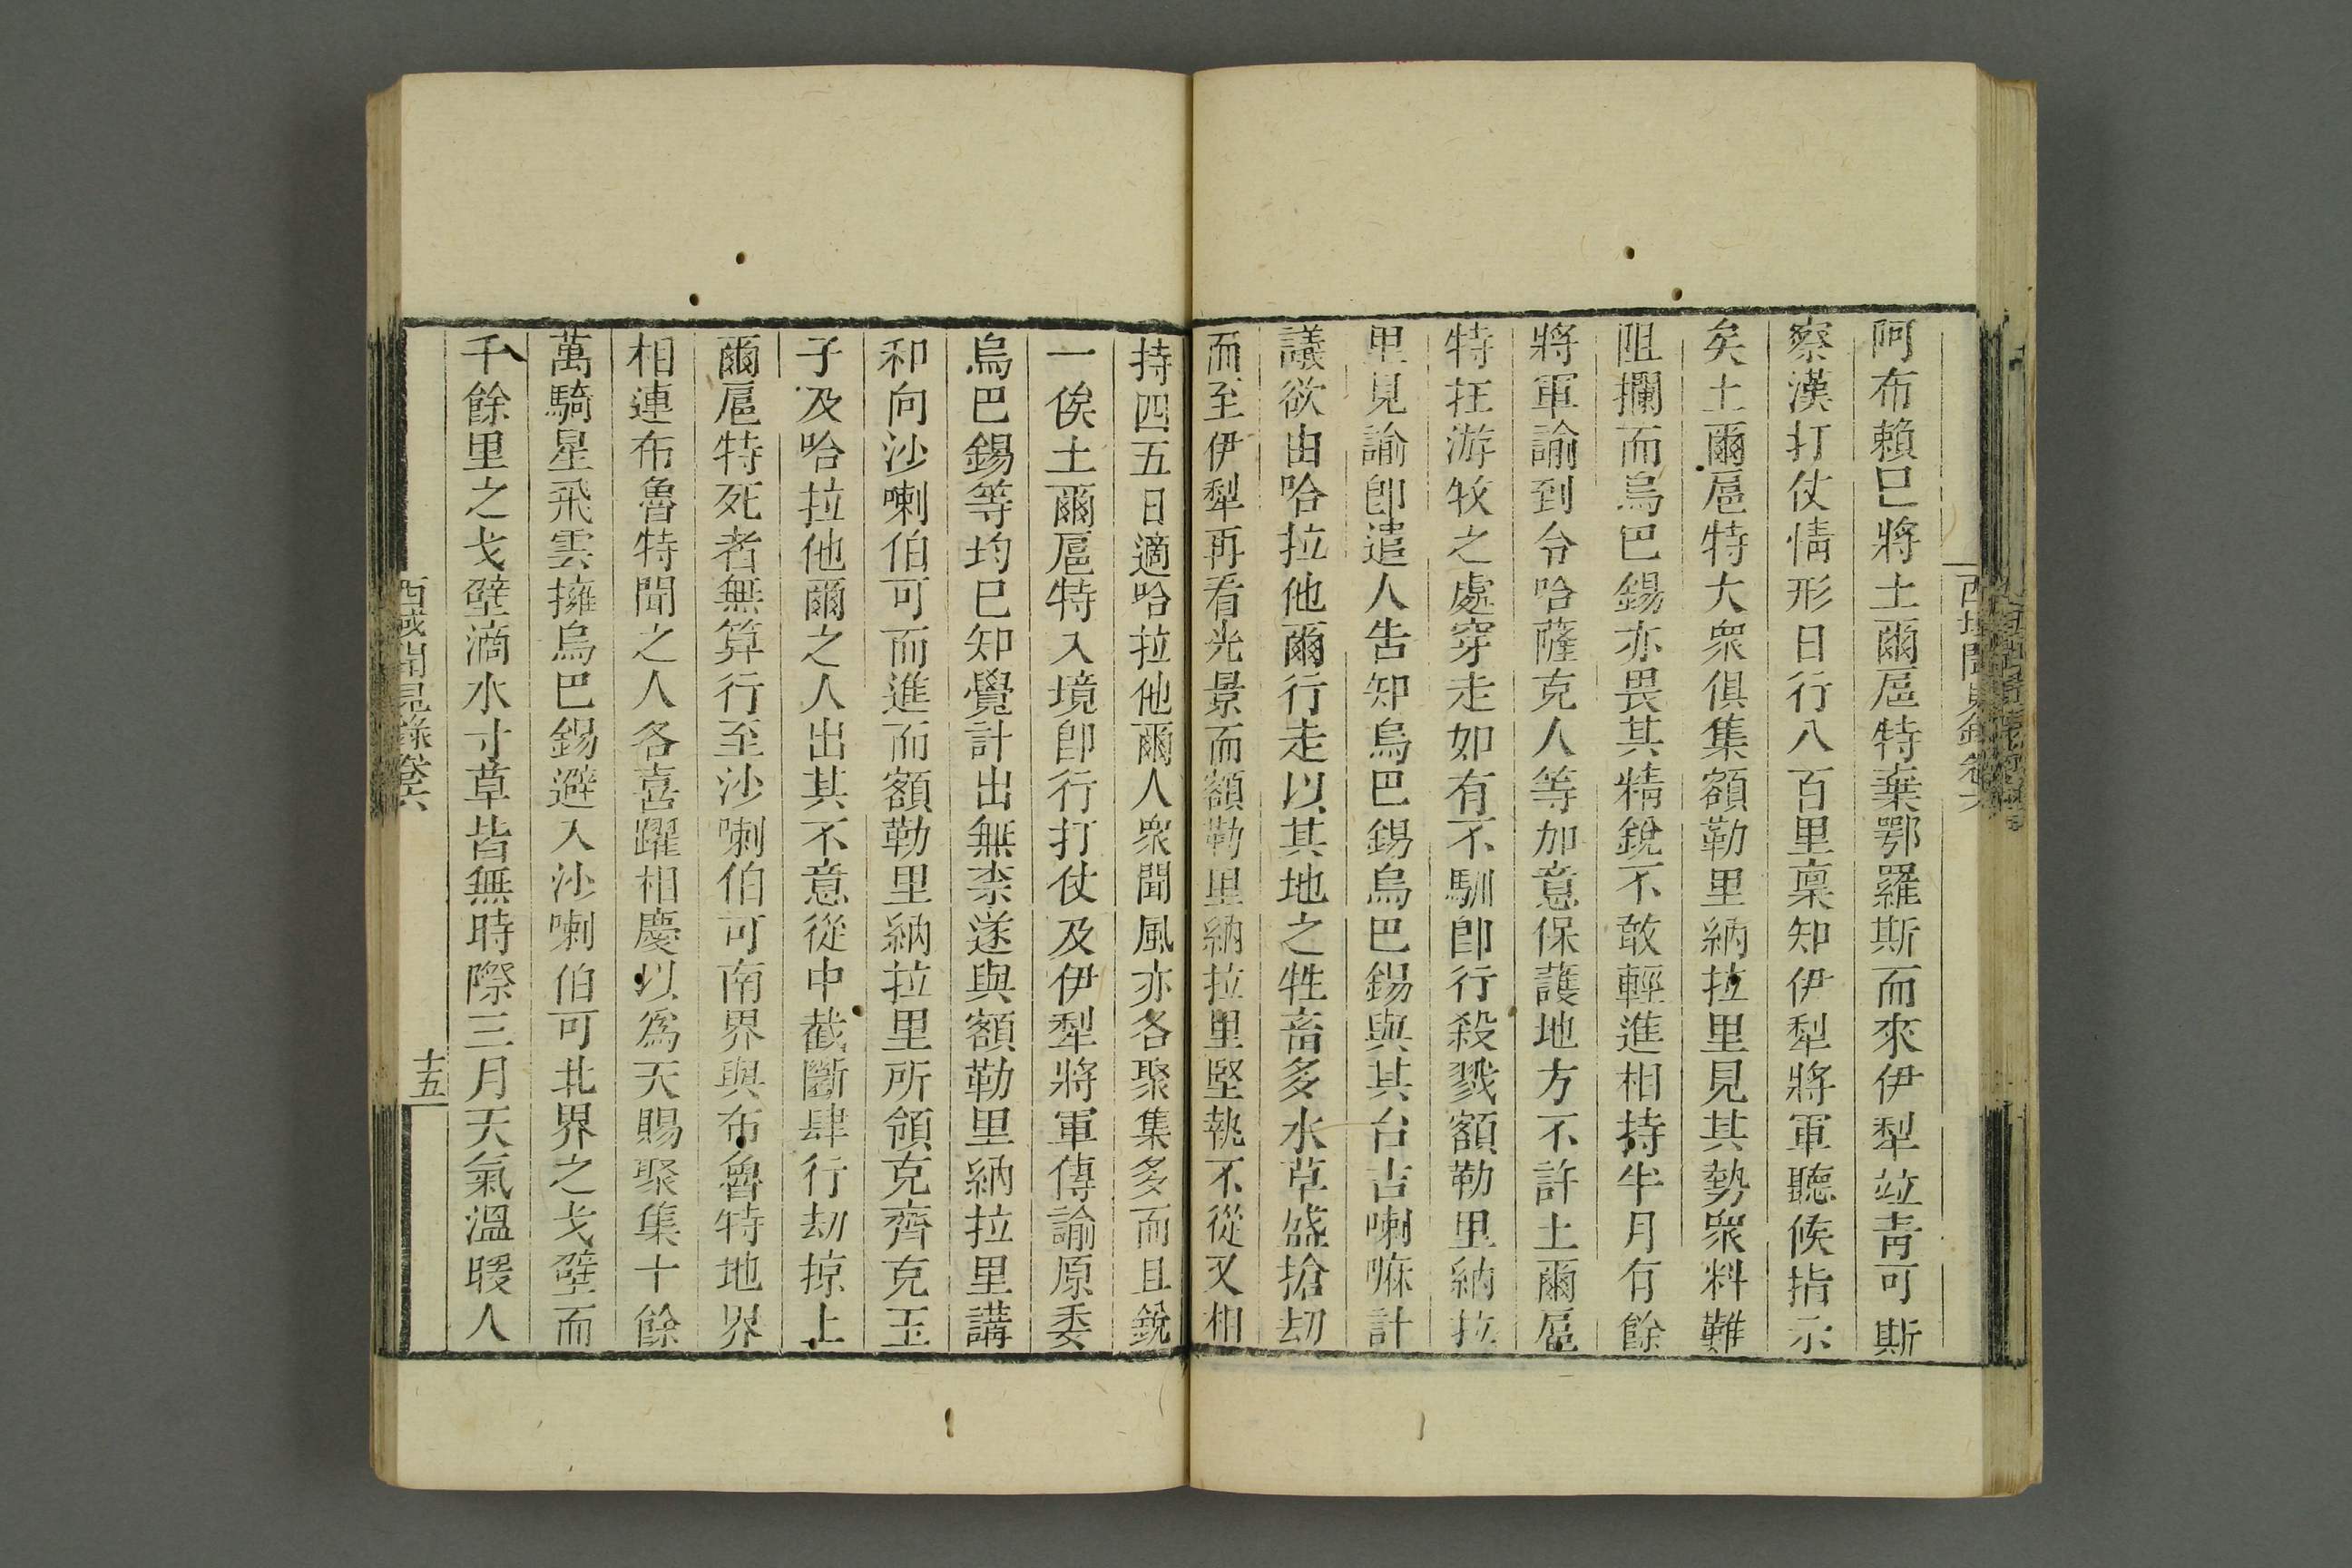 西域聞見錄卷六
阿布賴已將土爾扈特棄鄂羅斯而來伊犁竝靑可斯
察漢打仗情形日行八百里稟知伊犁將軍聽候指示
矣土爾扈特大衆俱集額勒里納拉里見其勢衆料難
阻攔而烏巴錫亦畏其精銳不敢輕進相持半月有餘
將軍諭到令哈薩克人等加意保護地方不許土爾扈
特在游牧之處穿走如有不馴卽行殺戮額勒里納拉
里見諭卽遣人告知烏巴錫烏巴錫與其台吉喇嘛計
議欲由哈拉他爾行走以其地之牲畜多水草盛搶刼
而至伊犁再看光景而額勒里納拉里堅執不從又相
持四五日適哈拉他爾人衆聞風亦各聚集多而且銳
一俟土爾扈特入境卽行打仗及伊犁將軍傳諭原委
烏巴錫等均已知覺計出無柰遂與額勒里納拉里講
和向沙喇伯可而進而額勒里納拉里所領克齊克玉
子及哈拉他爾之人出其不意從中截斷肆行刼掠土
爾扈特死者無算行至沙喇伯可南界與布魯特地界
相連布魯特聞之人各喜躍相慶以爲天賜聚集十餘
萬騎星飛雲擁烏巴錫避入沙喇伯可北界之戈壁而
千餘里之戈壁滴水寸草皆無時際三月天氣溫暖人
西域聞見錄卷六
十五